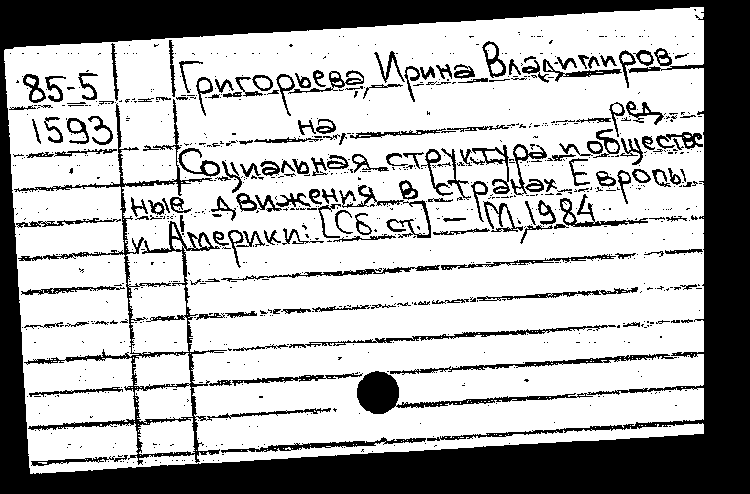 85-5 Григорьева, Ирина Владимиров-
1593 на, ред.
Социальная структура и обществен
ные движения в странах Европы
и Америки: [Сб. ст.] - М., 1984